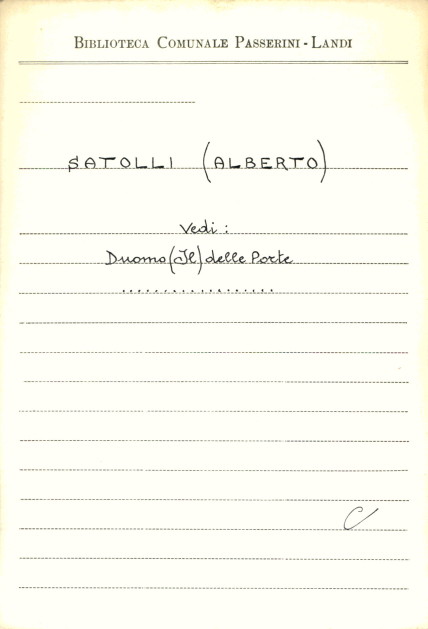 BIBLIOTECA COMUNALE PASSERINI - LANDI
SATOLLI (ALBERTO)
Vedi :
Duomo (Il) delle Porte
..................
C